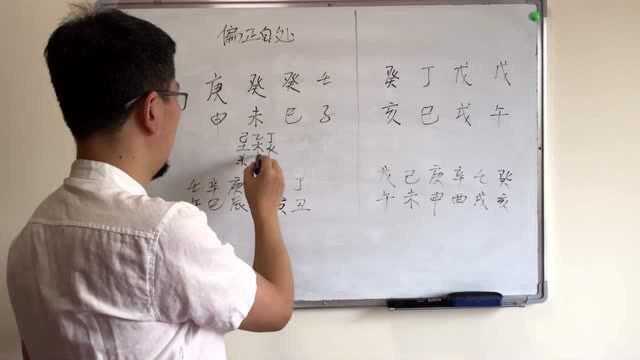 偏正自处
庚 癸 癸 壬
申 未 巳 子
己 乙 丁
壬 辛 庚 丁
午 巳 辰 亥 丑
癸 丁 戊 戊
亥 巳 戌 午
戊 己 庚 辛 壬 癸
午 未 申 酉 戌 亥